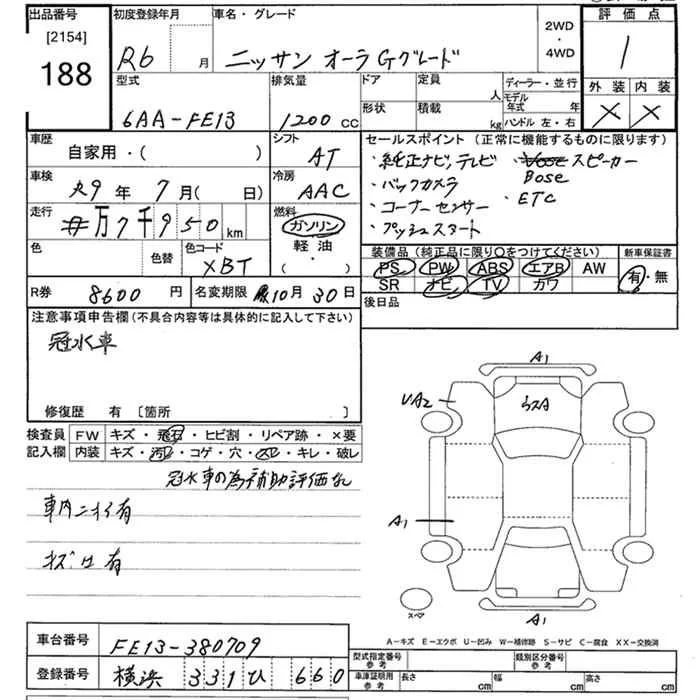 出品番号
[2154]
188
初度登録年月
R6 月
車名・グレード
ニッサン オーラ Gグレード
2WD
・
4WD
評価点
1
外装 内装
× ×
型式
6AA-FE13
排気量
1200 cc
ドア
形状
定員
人
積載
kg
ディーラー・並行
モデル年式 年
ハンドル 左・右
車歴
自家用・( )
シフト
AT
車検
R9 年 7 月( 日)
冷房
AAC
走行
万7千950 km
燃料
ガソリン
軽油・
( )
色
色替
色コード
XBT
セールスポイント (正常に機能するものに限ります)
・純正ナビ,テレビ
・Bose スピーカー
・バックカメラ
・ETC
・コーナーセンサー
・プッシュスタート
装備品 (純正品に限り○をつけてください)
PS PW ABS エアB AW
SR ナビ TV カワ
新車保証書
有・無
R券 8600 円
名変期限 10月30日
後日品
注意事項申告欄(不具合内容等は具体的に記入して下さい)
冠水車
修復歴 有 [箇所 ]
検査員記入欄
FW キズ・飛石・ヒビ割・リペア跡・×要
内装 キズ・汚レ・コゲ・穴・スレ・キレ・破レ
冠水車の為補助評価なし
車内ニオイ有
キズ凹有
A1
UA2
ラスA
A1
スペア
A1
A-キズ E-エクボ U-凹み W-補修跡 S-サビ C-腐食 XX-交換済
車台番号 FE13-380709
登録番号 横浜 331 ひ 660
型式指定番号 参考
類別区分番号 参考
車庫証明用 参考 長さ cm 幅 cm 高さ cm